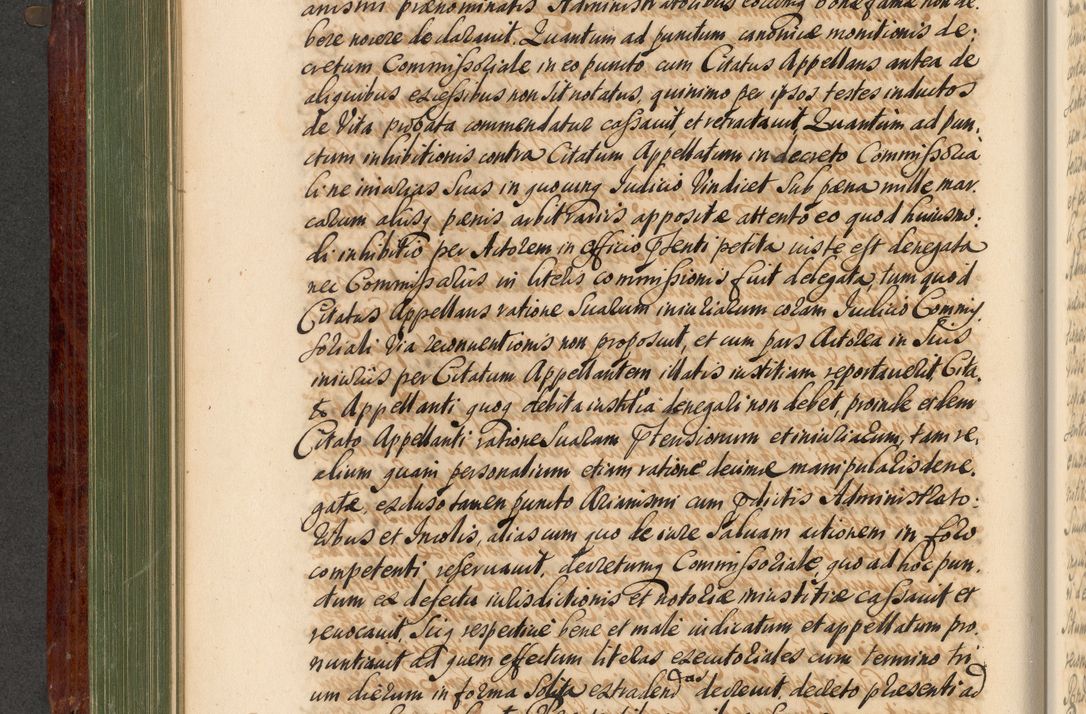 anismi prænominatis Administratoribus eorumq bonæ famæ non de:
bere nocere declarauit. Quantum ad punctum canonicæ monitionis de:
cretum Commissoriale in eo puncto cum Citatus Appellans antea de
aliquibus excessibus non sit notatus, quinimo per ipsos testes inductos
de Vita probata commendatur cassauit, et retractauit, Quantum ad pun:
ctum inhibitionis contra Citatum Appellatum in decreto Commissoria
li ne iniurias Suas in quocunq Iudicio Vindicet Sub pæna mille mar
carum alijsq pænis arbitrarijs appositæ attento eo quod huiusmo:
di inhibitio per Actorem in officio pñsenti petita iuste est denegata
nec Commissarijs in literis commissionis fuit delegata, tum quod
Citatus Appellans ratione Suarum iniuriarum coram Iudicio Commis
soriali Via reconuentionis non proposuit, et cum pars Actorea in Suis
iniurijs per Citatum Appellantem illatis iustitiam reportauerit, Cita:
to Appellanti quoq debita iustitia denegari non debet, proinde eidem
Citato Appellanti ratione Suarum ptensionum et iniuriarum, tam re,
alium quam personalium etiam ratione decimæ manipularis dene,
gatæ, excluso tamen puncto Arianismi cum pdictis Administrato:
ribus et Incolis, alias cum quo de iure Saluam actionem in foro
competenti reseruauit, decretumq Commissoriale, quo ad hoc pun,
ctum ex defectu iurisdictionis et notoriæ iniustitiæ cassauit et
reuocauit, Sicq respectiue bene et male iudicatum et appellatum pro,
nuntiauit ad quem effectum literas executoriales cum termino tri
um dierum in forma Solita extradendas decreuit, decreto præsenti ad